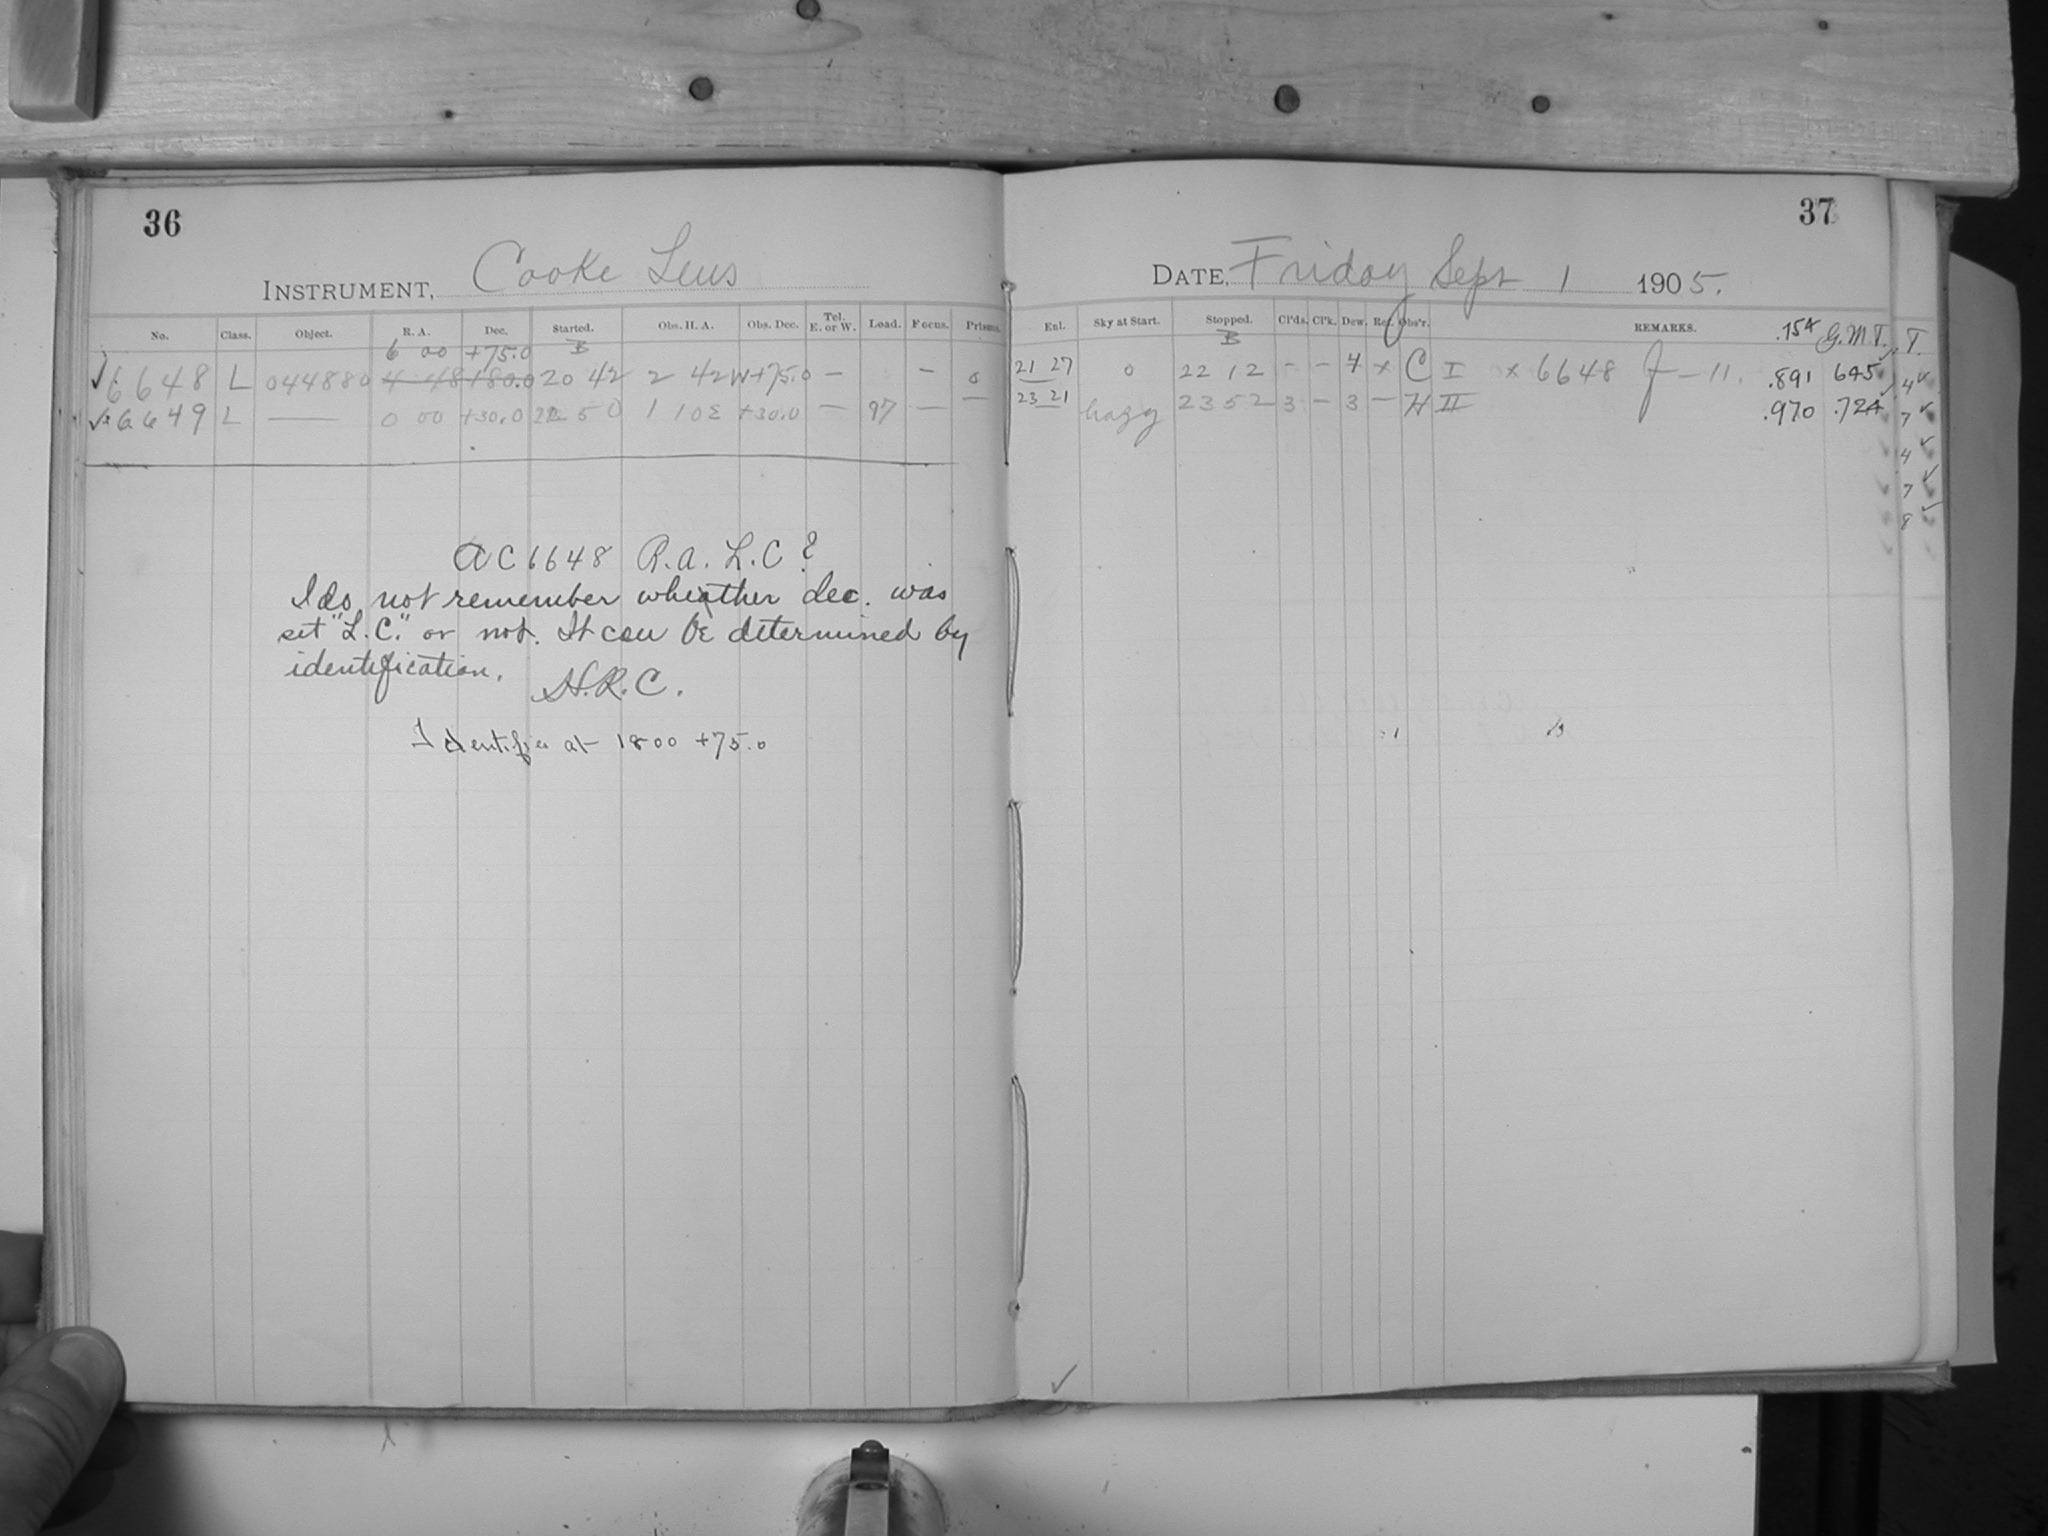 36
INSTRUMENT, Cooke Lens
No. Class. Object. R. A. Dec. Started. Obs. H. A. Obs. Dec. Tel. E. or W. Load. Focus. Prisms.
6 00 +75.0 B
✓ 6648 L 044880 4 48 +80.0 20 42 2 42W +75.0 — — 0
✓ 6649 L — 0 00 +30.0 22 50 1 10E +30.0 — 97 — —
AC 6648 R.A. L.C?
I do not remember wheather dec. was
set "L.C." or not. It can be determined by
identification.
H.R.C.
Identifies at 1800 +75.0
37
DATE, Friday Sept 1 1905.
Exl. Sky at Start. Stopped. Cl'ds. Cl'k. Dew. Rec. Obs'r. REMARKS. .154 G.M.T. T.
B
21 27 0 22 12 - - 4 x C I x 6648 J — 11. .891 645 4 ✓
23 21 hazy 23 52 3 - 3 — H II .970 .724 7 ✓
4 ✓
7 ✓
8 ✓
✓